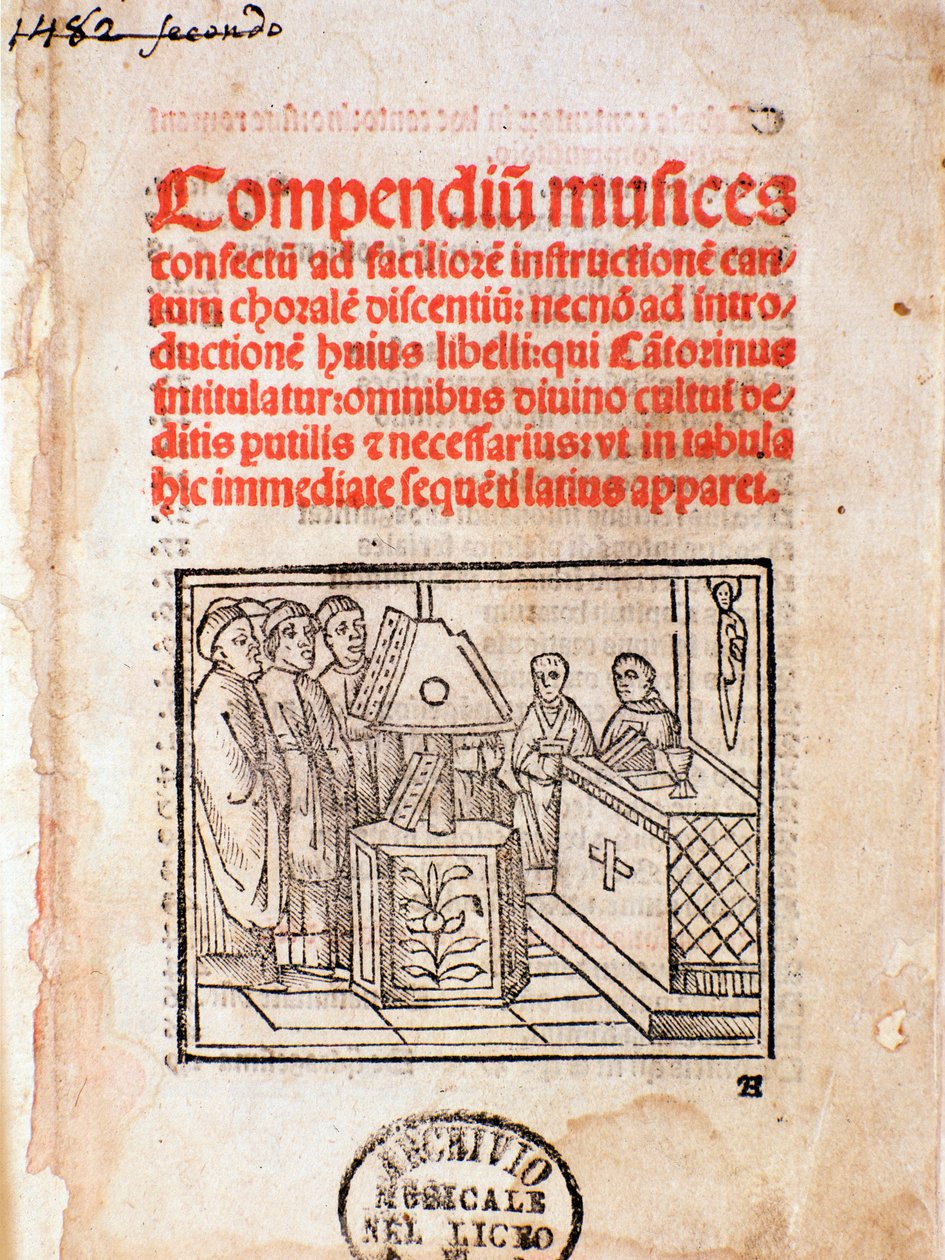 1482 secondo
Compendiū musices
confectū ad faciliorē instructionē can/
tum choralē discentiū: necnō ad intro/
ductionē huius libelli: qui Cātorinus
intitulatur: omnibus diuino cultui de/
ditis putilis ⁊ necessarius: vt in tabula
hic immediate sequēti latius apparet.
A
ARCHIVIO
MUSICALE
NEL LICEO